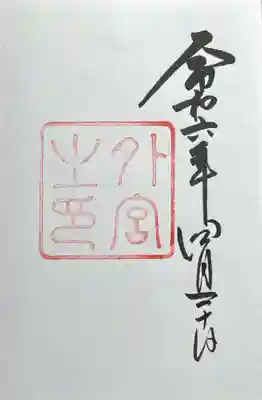 令和六年四月二十日
外宮之印